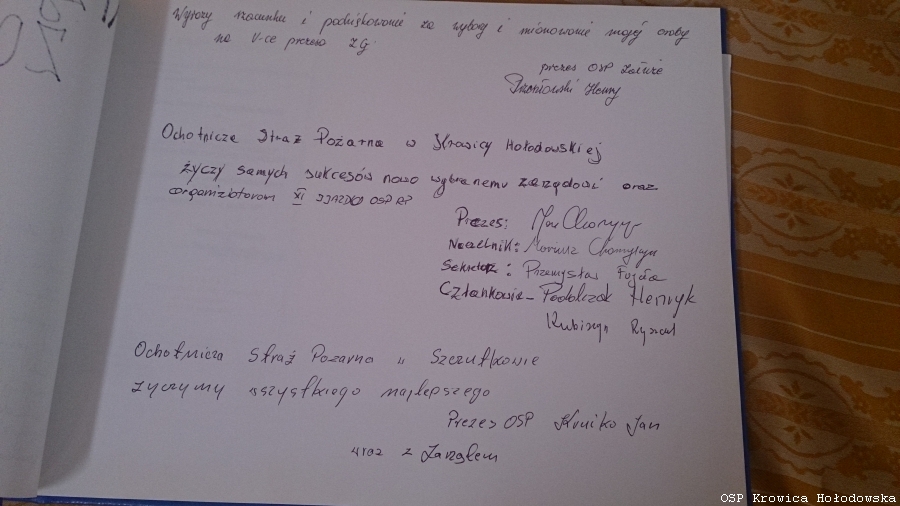 Wyrazy szacunku i podziękowanie za wybory i mionowanie mojej osoby
na V-ce prezesa ZG
prezes OSP Załuże
Ochotnicza Straż Pożarna w Krowicy Hołodowskiej
życzy samych sukcesów nowo wybranemu zarządowi oraz
organizatorom XI ZJAZDU OSP RP
Prezes:
Naczelnik: Mariusz
Sekretarz: Przemysław
Członkowie - Podolczak Henryk
Ochotnicza Straż Pożarna w Szczutkowie
życzymy wszystkiego najlepszego
Prezes OSP Jan
wraz z Zarządem
OSP Krowica Hołodowska